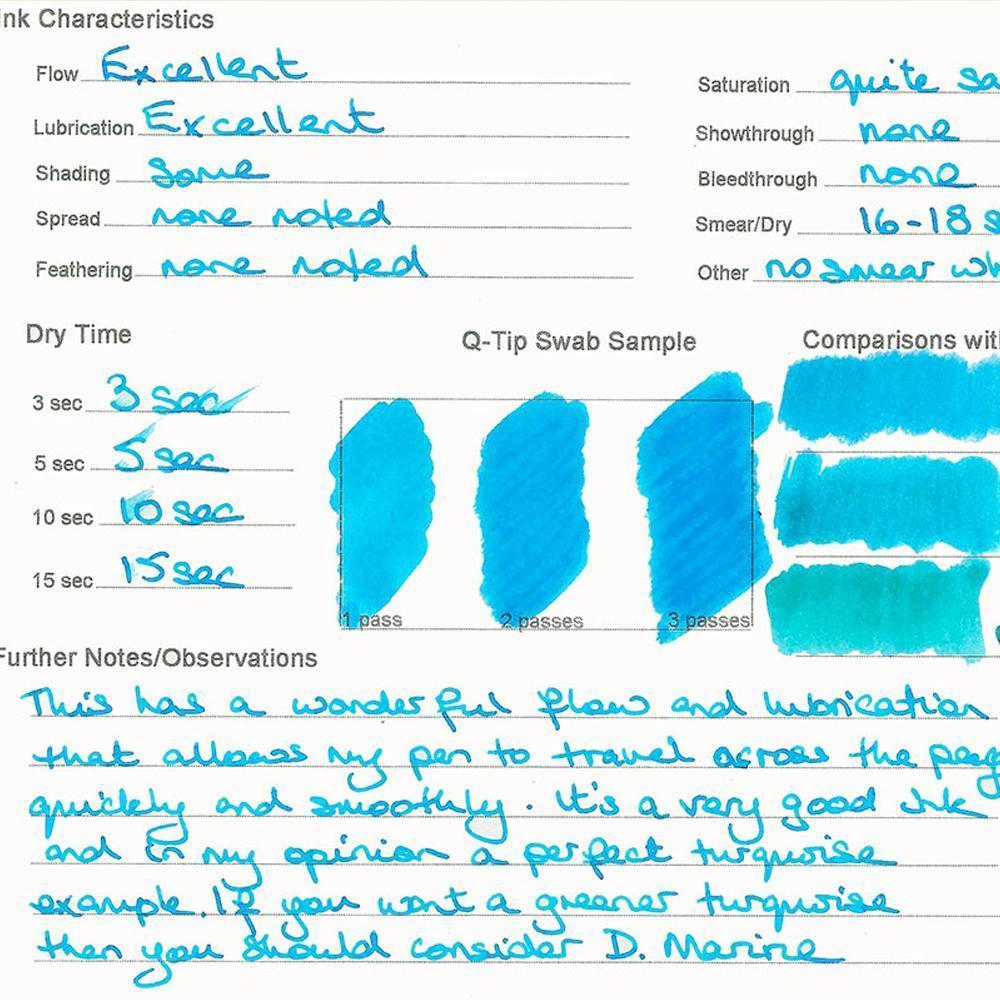 Ink Characteristics
Flow Excellent
Saturation quite sa
Lubrication Excellent
Showthrough none
Shading some
Bleedthrough none
Spread none noted
Smear/Dry 16-18 s
Feathering none noted
Other no smear wh
Dry Time
Q-Tip Swab Sample
Comparisons wit
3 sec 3 sec
5 sec 5 sec
10 sec 10 sec
15 sec 15 sec
1 pass 2 passes 3 passes
Further Notes/Observations
This has a wonderful flow and lubrication
that allows my pen to travel across the pag
quickly and smoothly. It's a very good ink
and in my opinion a perfect turquoise
example. If you want a greener turquoise
then you should consider D. Marine